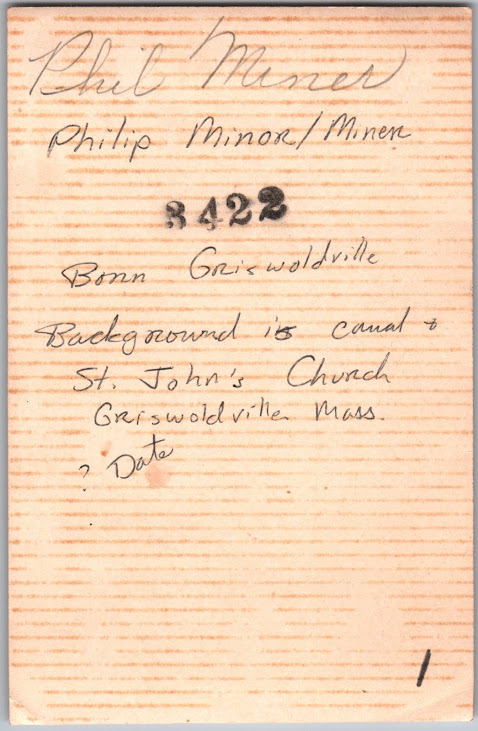 Phil Miner
Philip Minor/Miner
3422
Born Griswoldville
Background is canal +
St. John's Church
Griswoldville Mass.
? Date
1